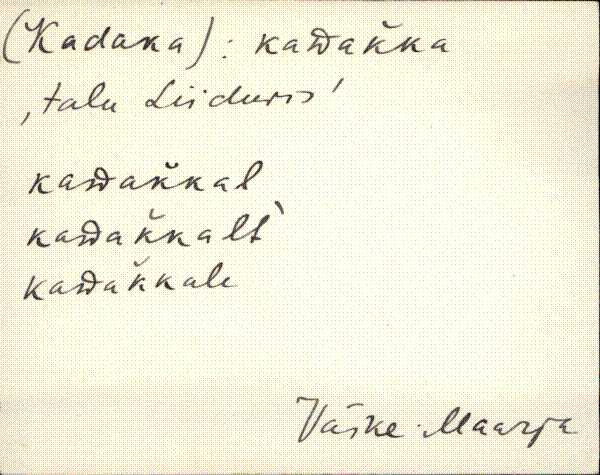 (Kadaka) : kaᴅak̆ka
‚talu Liiduris’
kaᴅak̆kal
kaᴅak̆kalt̀
kaᴅak̆kale
Väike-Maarja